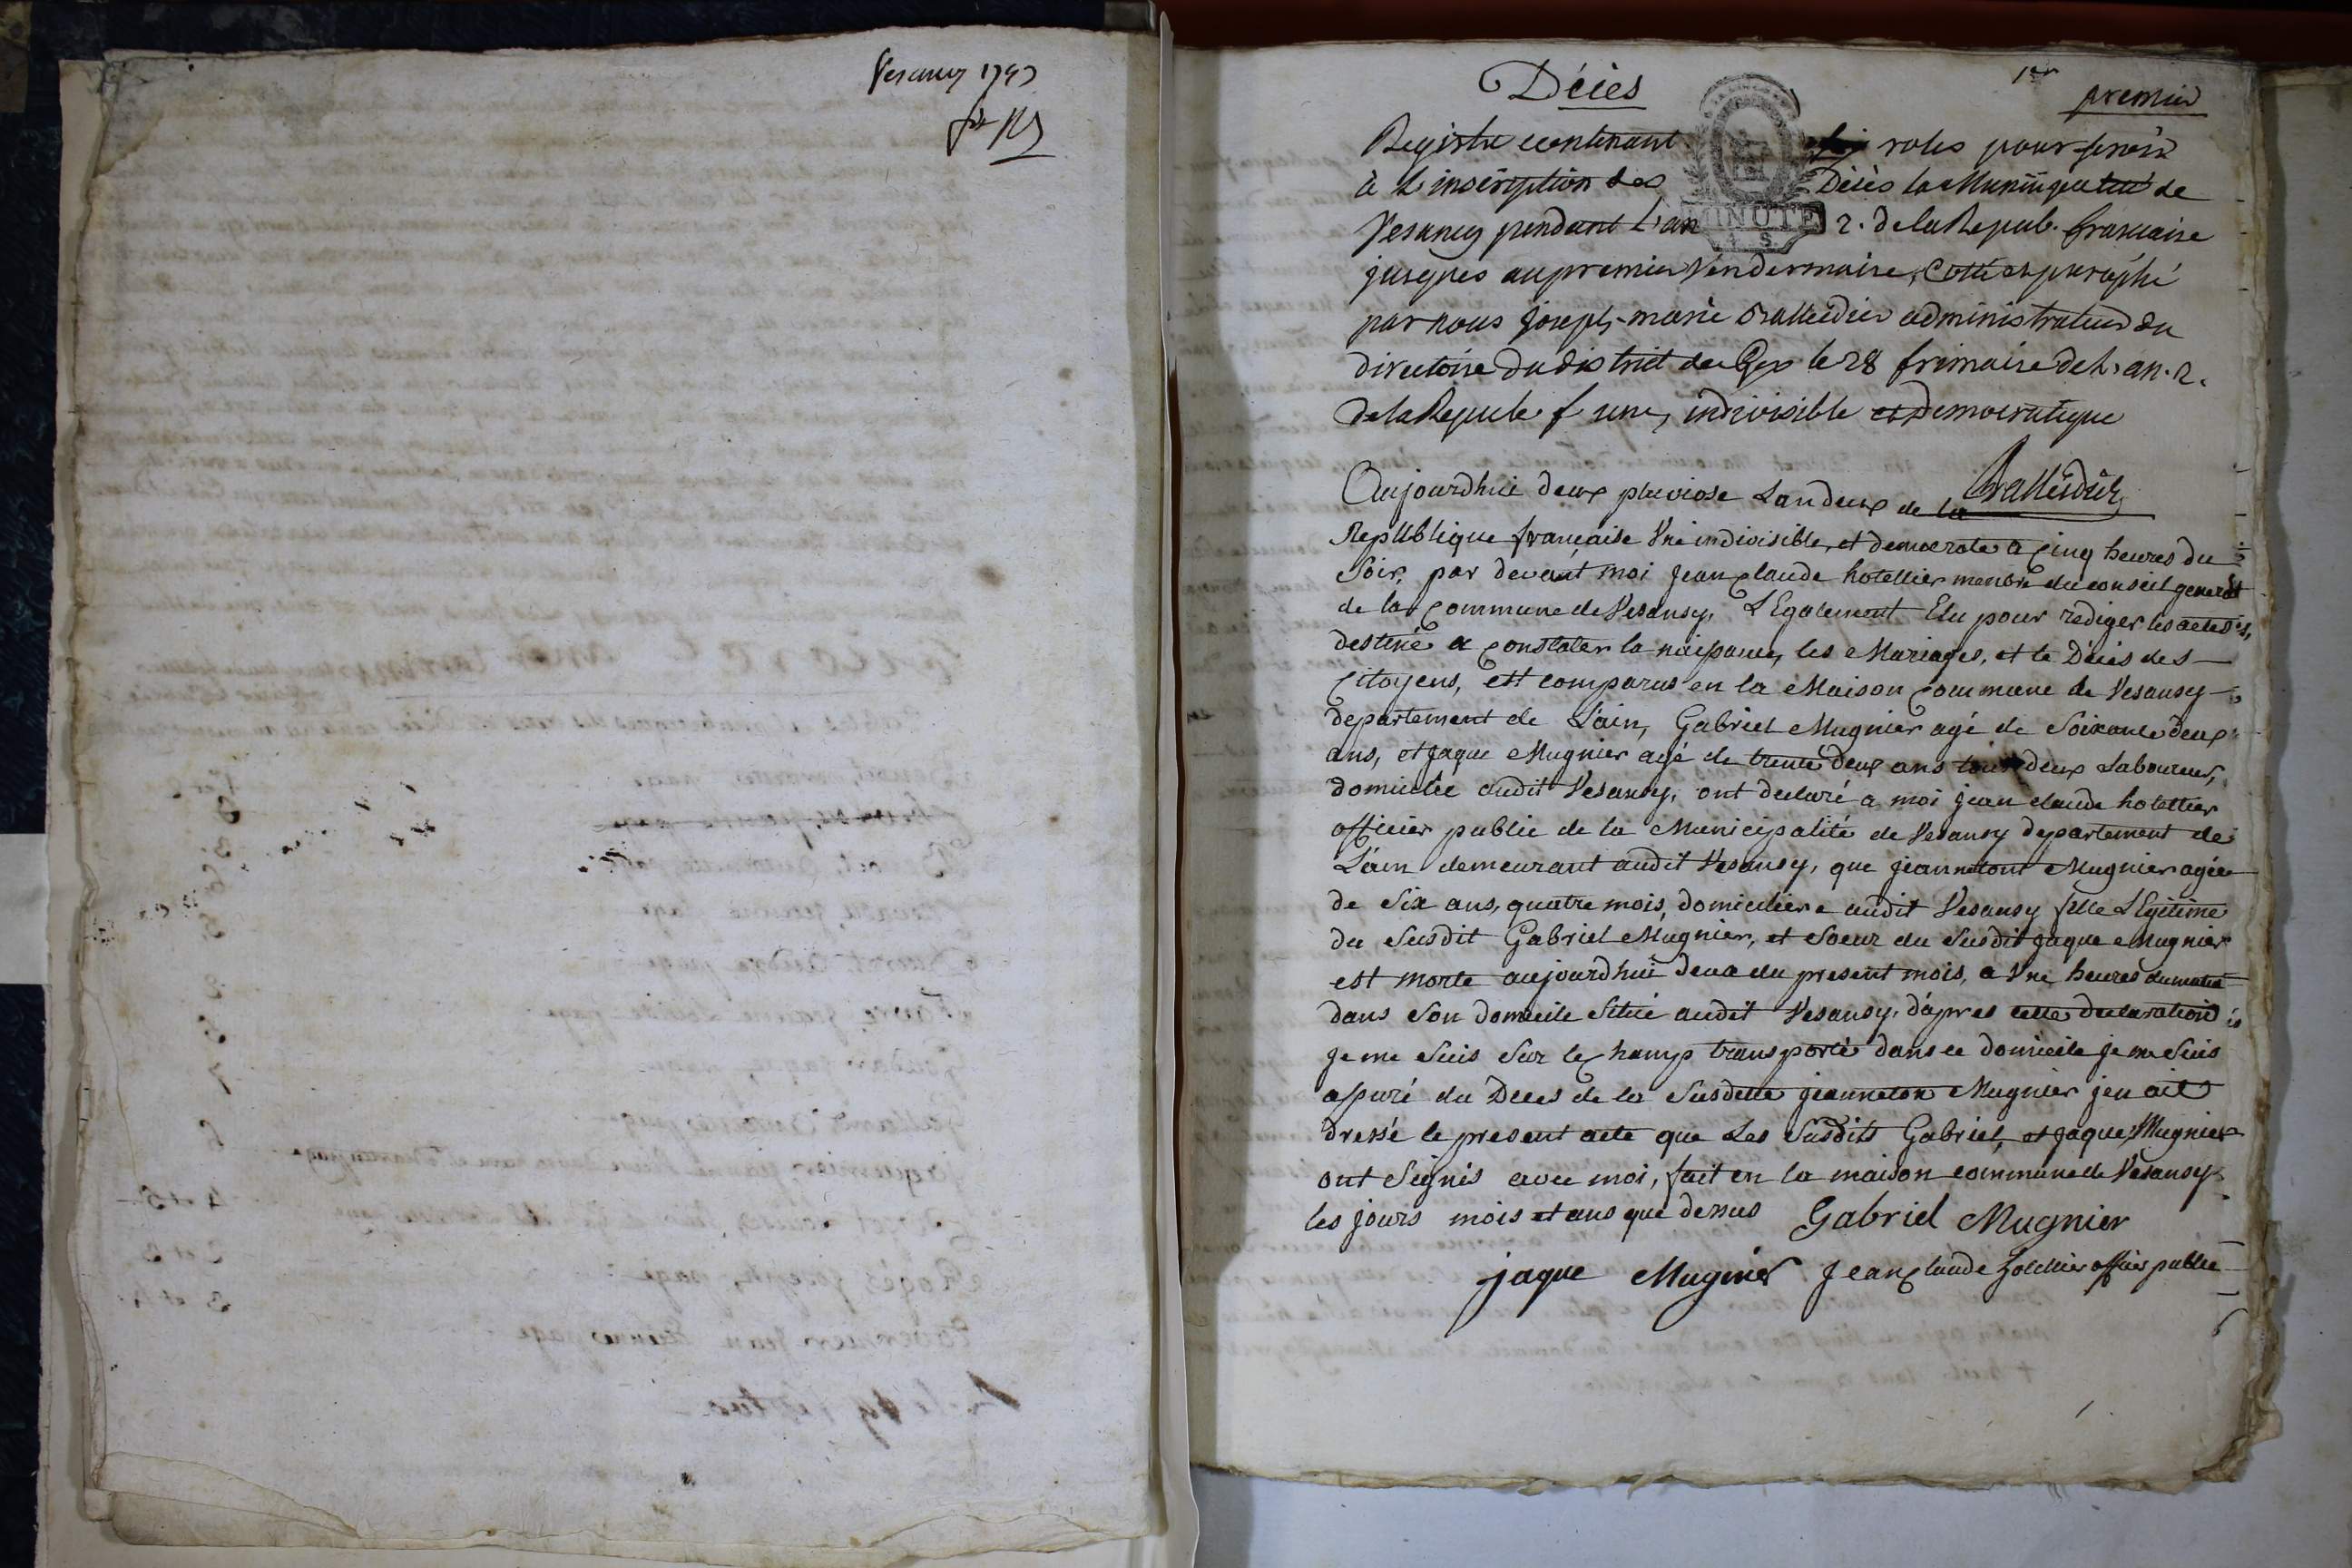 Vesancy 1793
Décès
1er
premier
Registre contenant six roles pour servir
à L'inscription des Décès la Municipalité de
MINUTE
4 S
Vesancy pendant L'an 2. de la Repub. francaise
jusques au premier Vendermaire, Cotté et paraphé
par nous joseph-marie Balleidier administrateur du
directoire du district de Gex le 28 frimaire de L'an. 2.
de la Repub f une, indivisible et democratique
Balleidier
Aujourdhui deux pluviose Landeux de la
RepUblique française Une indivisible, et democrate a Cinq heures du
Soir, par devant moi Jean Claude hotellier membre du conseil general
de la Commune de Vesansy, LEgalement Elu pour rediger les actes
destiné a Constater la naissance, les Mariages, et le Décés des
Citoyens, est comparus en la Maison Commune de Vesansy
departement de L'ain, Gabriel Mugnier agé de Soixante deux
ans, et Jaque Mugnier agé de trente deux ans tous deux Laboureur,
domicilié audit Vesansy, ont declaré a moi jean claude hotellier
officier public de la Municipalité de Vesansy departement de
L'ain demeurant audit Vesansy, que jeannetont Mugnier agée
de Six ans, quatre mois, domiciliere audit Vesansy fille LEgitime
du Susdit Gabriel Mugnier, et Soeur du Susdit Jaque Mugnier
est morte aujourdhui deux du present mois, a Une heures du matin
dans Son domicile Situé audit Vesansy, d'apres cette declaration
Je me Suis Sur le Champ transporté dans ce domicile Je me Suis
assuré du Deces de la Susdette jeanneton Mugnier jen ait
dressé le present acte que Les Susdits Gabriel, et Jaque Mugnier
ont Seignés avec moi, fait en la maison commune de Vesansy
les jours mois et ans que dessus Gabriel Mugnier
jaque Mugnier Jean Claude hotellier officier public